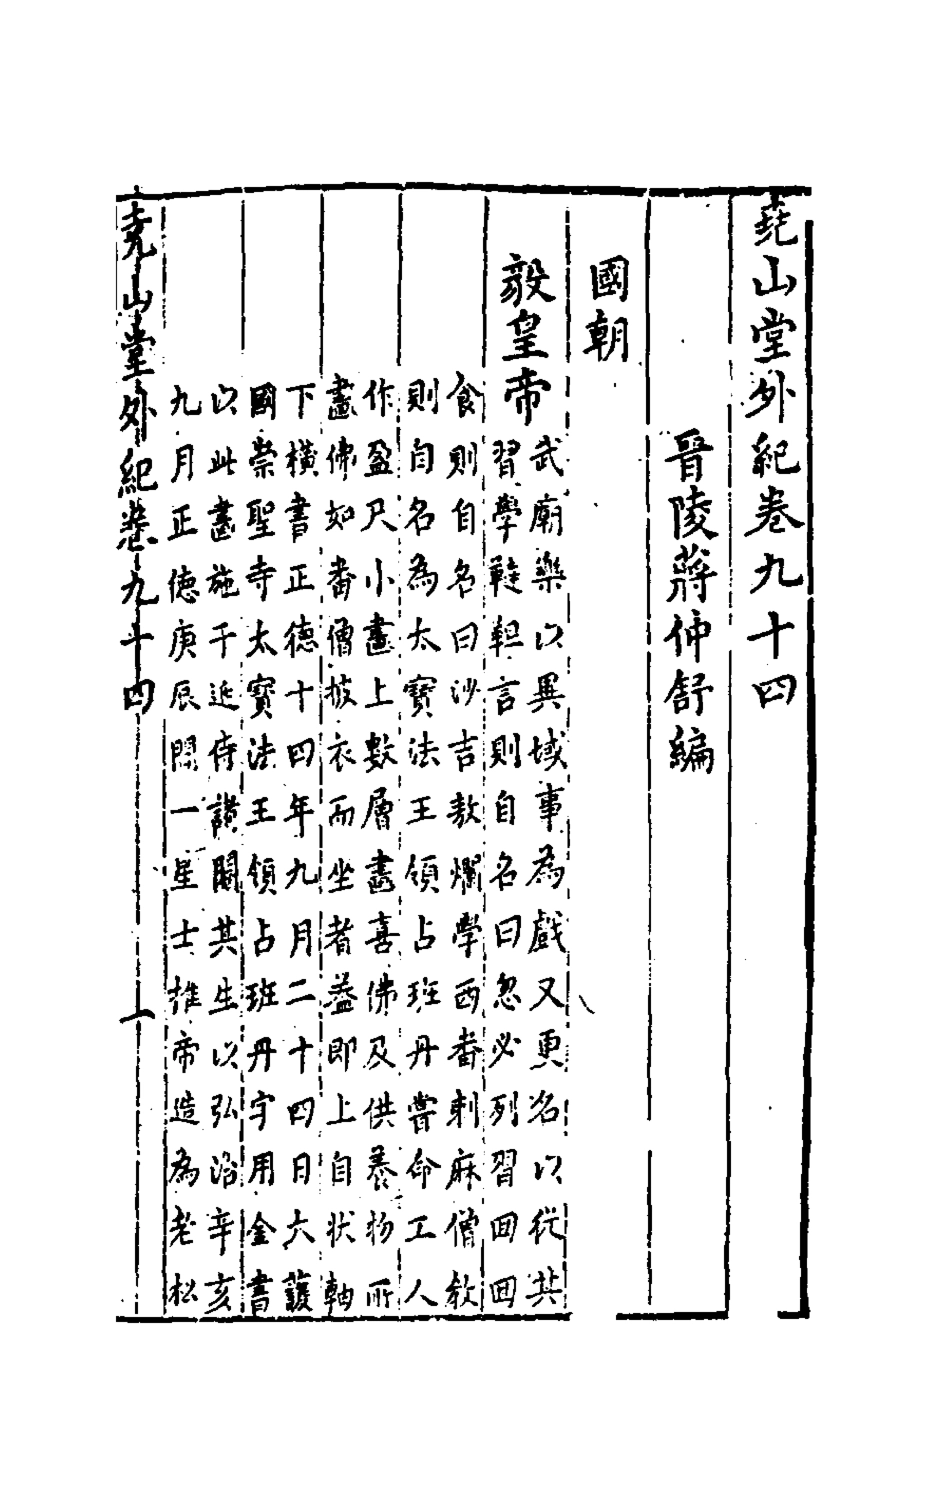 堯山堂外紀卷九十四
晉陵蔣仲舒編
國朝
毅皇帝
武廟樂以異域事為戲又更名以從其
習學韃靼言則自名曰忽必列習回回
食則自名曰沙吉敖爛學西番刺麻僧教
則自名為太寶法王領占班丹嘗命工人
作盈尺小畫上數層畫喜佛及供養物所
畫佛如番僧披衣而坐者葢即上自狀軸
下橫書正德十四年九月二十四日大護
國崇聖寺太寶法王領占班丹字用金書
以此畫施于近侍讃聞其生以弘治辛亥
九月正徳庚辰間一星士推帝造為老松
堯山堂外紀卷九十四
一